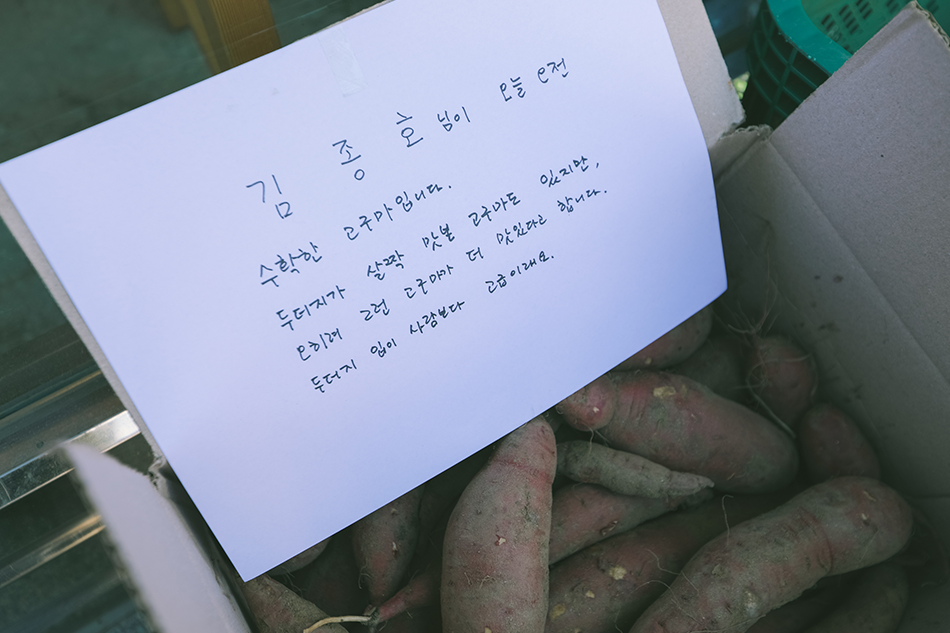 김종호님이 오늘 오전
수확한 고구마입니다.
두더지가 살짝 맛본 고구마도 있지만,
오히려 그런 고구마가 더 맛있다고 합니다.
두더지 입이 사람보다 고급이래요.